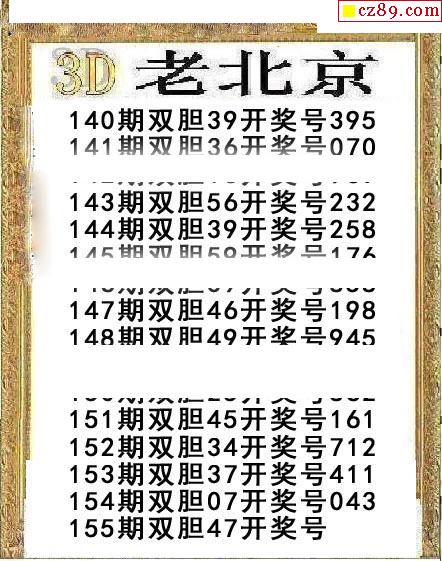 cz89.com
3D 老北京
140期双胆39开奖号395
141期双胆36开奖号070
143期双胆56开奖号232
144期双胆39开奖号258
145期双胆59开奖号176
147期双胆46开奖号198
148期双胆49开奖号945
期双胆开奖号
151期双胆45开奖号161
152期双胆34开奖号712
153期双胆37开奖号411
154期双胆07开奖号043
155期双胆47开奖号